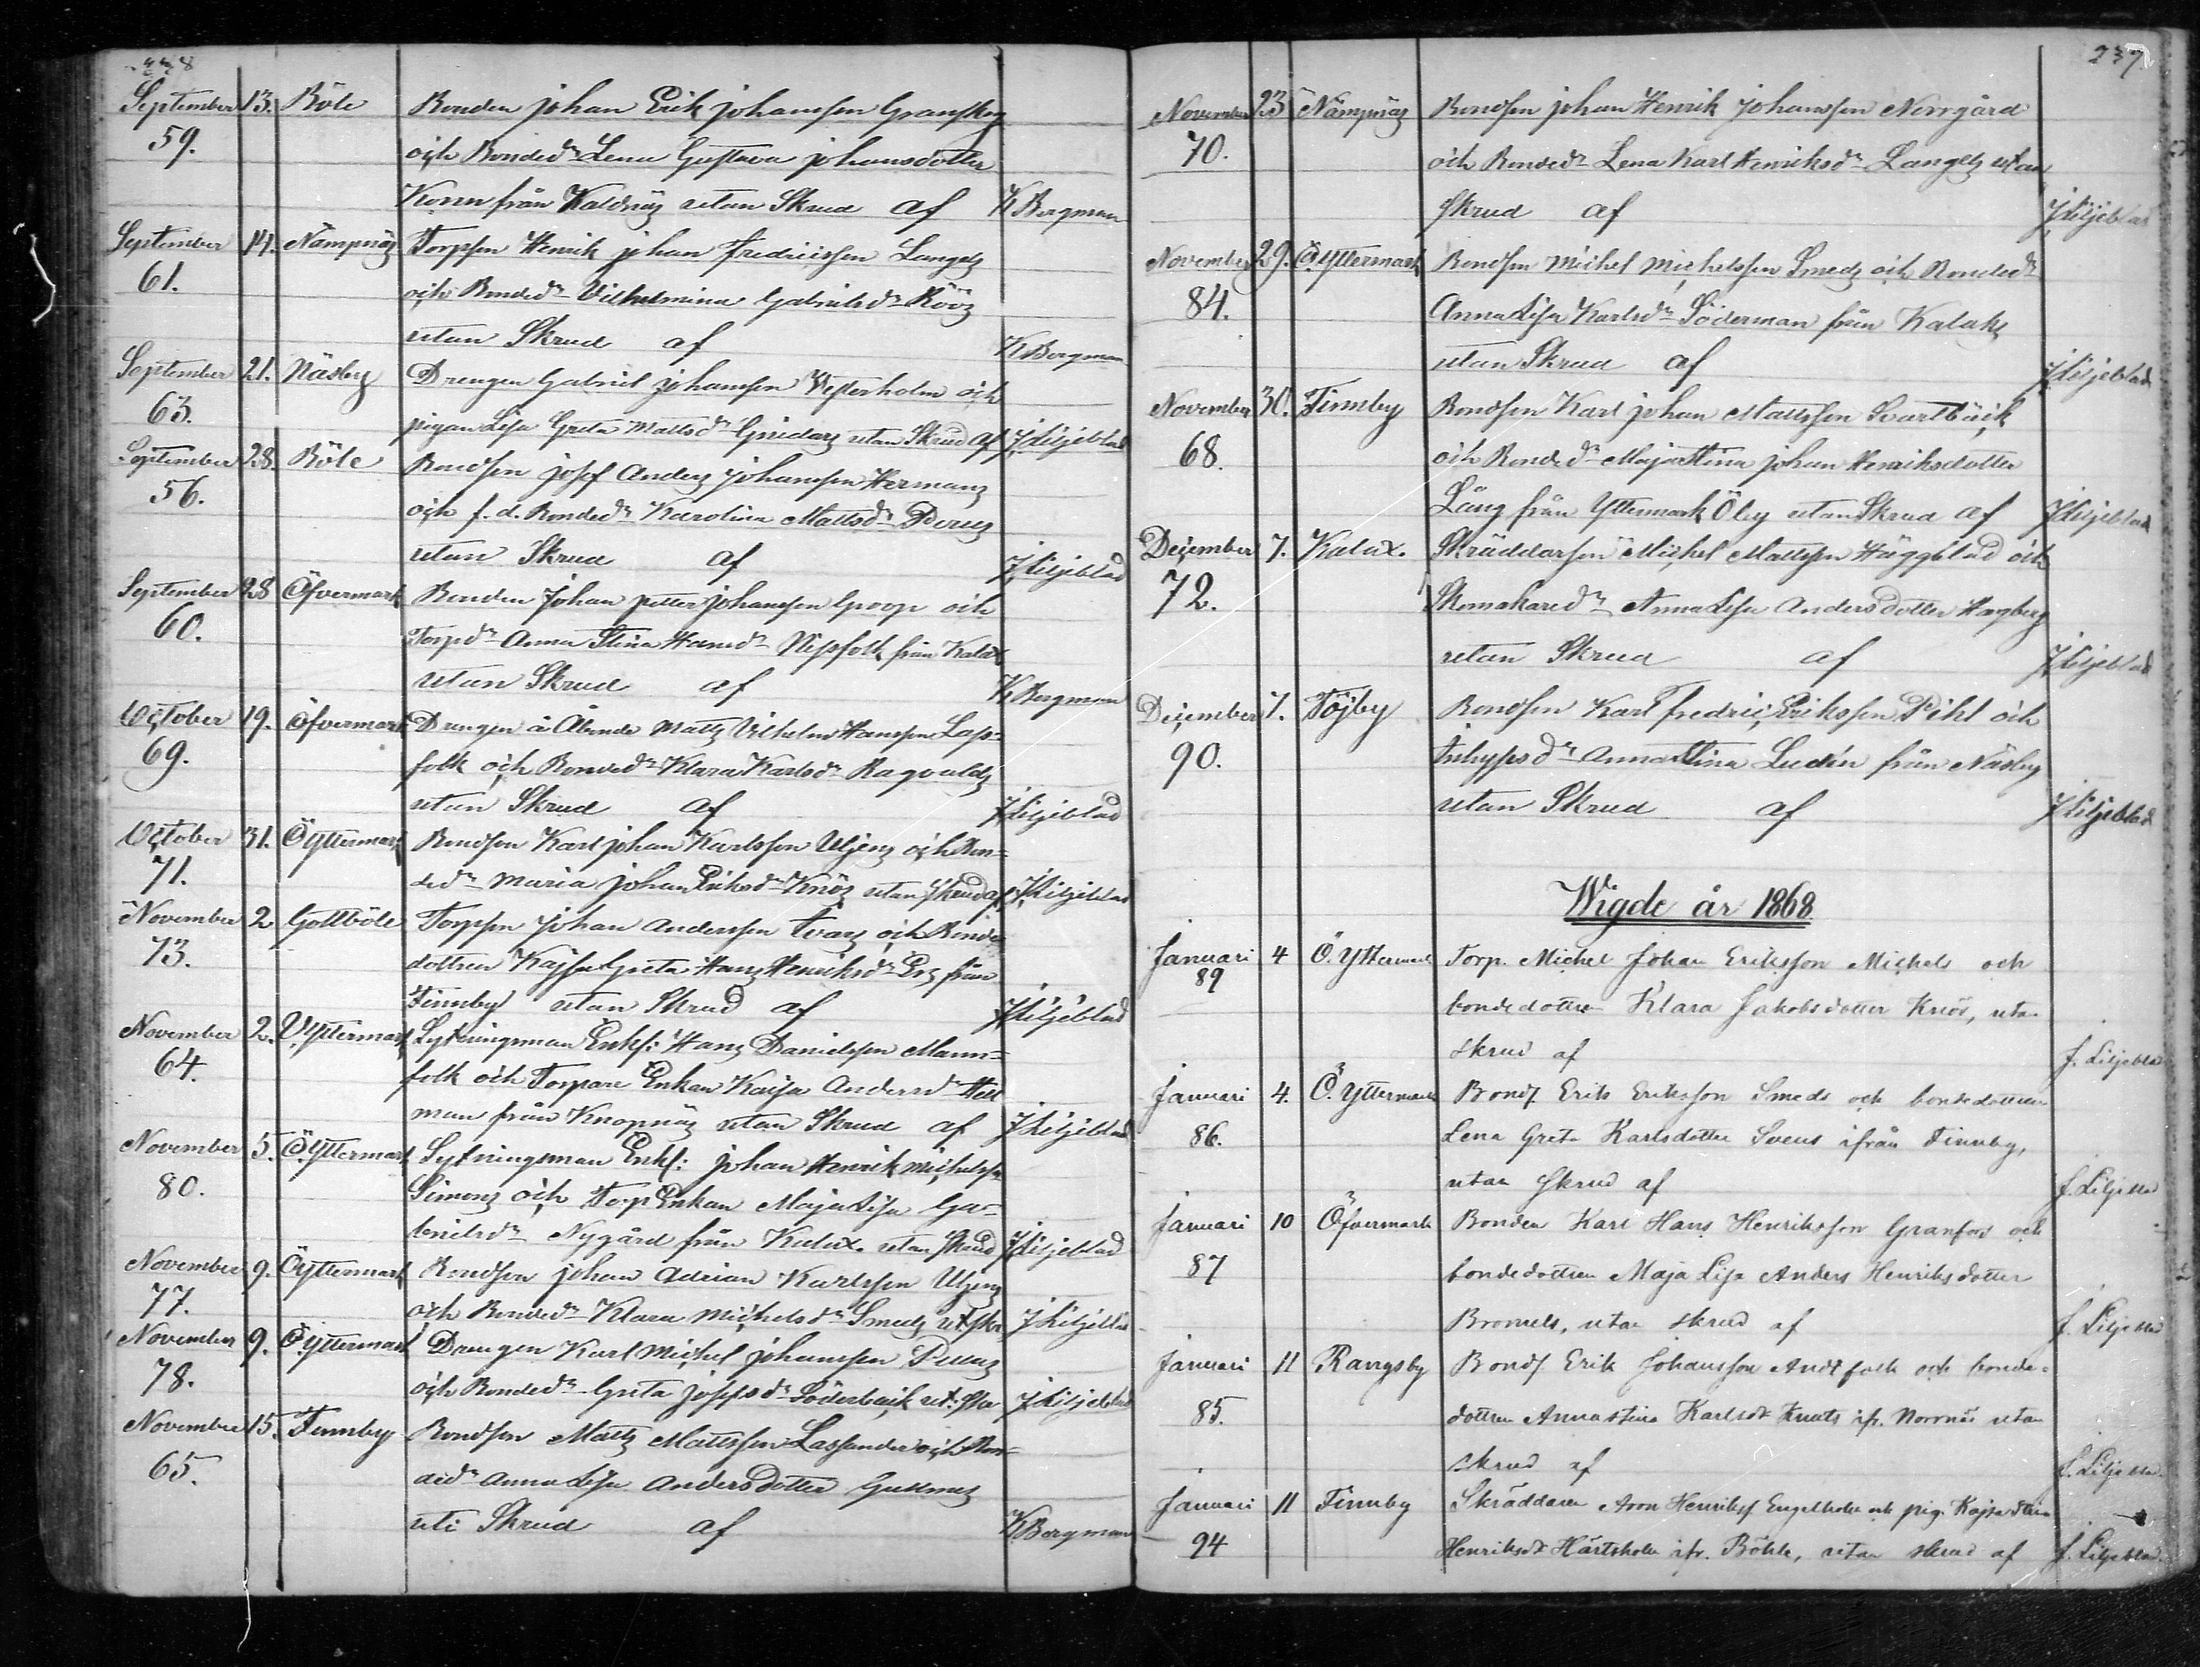 September 13. Böle Bonden Johan Erik Johansson Granskog
59. och Bonded:r Lena Gustava Johansdotter
Korm från Kaldnäs utan Skrud af K Bergman
September 14. Nämpnäs Torpson Henrik Johan Fredricsson Langels
61. och Bonded:r Vilhelmina Gabrielsd:r Röös
utan Skrud af K Bergman
September 21. Näsby Drengen Gabriel Johansson Westerholm och
63. pigan Lisa Greta Mattsd:r utan Skrud af J Liljeblad
September 28. Böle Bondson Josef Anders Johansson Hermans
56. och f. d. Bonded:r Karolina Mattsd:r
utan Skrud af J Liljeblad
September 28 Öfvermark Bonden Johan Petter Johansson Groop och
60. Torpd:r Anna Stina Hansd:r Nissfolk från Kalax
utan Skrud af K Bergman
October 19. Öfvermark Drengen å Åbonde Matts Vilhelm Hansson Lass=
69. folk och Bonded:r Klara Karlsd:r Ragvalds
utan Skrud af J Liljeblad
October 31. Ö Yttermark Bondson Karl Johan Karlsson Uljens och Bon=
71. ded:r Maria Johan Eriksd:r Knös utan Skrud af J Liljeblad
November 2 Gottböle Torpson Johan Andersson Ivars och Bonde
73. dottren Kajsa Greta Hans Henriksd:r Ers från
Finnby utan Skrud af J Liljeblad
November 2. Ö Yttermark Sytningsman Enkl: Hans Danielsson Mann=
64. folk och Torpare Enkan Kajsa Andersd:r Hell
man från Knopnäs utan Skrud af J Liljeblad
November 5. Ö Yttermark Sytningsman Enkl: Johan Henrik Michelsson
80. Simons och Torp Enkan Maja Lisa Ga=
brielsd:r Nygård från Kalax utan Skrud J Liljeblad
November 9. Ö Yttermark Bondson Johan Adrian Karlsson Uljens
77. och Bonded:r Klara Michelsd:r Smeds ut. Skr J Liljeblad
November 9. Ö Yttermark Drengen Karl Michel Johansson
78. och Bonded:r Greta Josefsd:r Söderback ut: Skr J Liljeblad
November 15. Finnby Bondson Matts Mattsson Lassander och Bon=
65. ded:r Anna Lisa Andersdotter
uti Skrud af K Bergman
237
November 23 Nämpnäs Bondson Johan Henrik Johansson Norrgård
70. och Bonded:r Lena Karl Henriksd:r Langels utan
Skrud af J Liljeblad
November 29. Ö Yttermark Bondson Michel Michelsson Smeds och Bonded:r
84. Anna Lisa Karlsd:r Söderman från Kalaks
utan Skrud af J Liljeblad
November 30. Finnby Bondson Karl Johan Mattsson Svartbäck
68. och Bonded:r Maja Stina Johan Henriksdotter
Lång från Yttermark Öby utan Skrud af J Liljeblad
December 7. Kalax. Skräddarson Michel Mattsson Häggblad och
72. Skomakared:r Anna Lisa Andersdotter Hagberg
utan Skrud af J Liljeblad
December 7. Töjby Bondson Karl Fredric Eriksson Pihl och
90. Inhyssd:r Anna Stina Ludén från Näsby
utan Skrud af J Liljeblad
Wigde år 1868
Januari 4 Ö. Yttermark Torp. Michel Johan Eriksson Michels och
89 bondedottren Klara Jakobsdotter Knös, utan
skrud af J. Liljeblad
Januari 4. Ö. Yttermark Bonds. Erik Eriksson Smeds och bondedottren
86. Lena Greta Karlsdotter Svens ifrån Finnby,
utan skrud af J. Liljeblad
Januari 10 Öfvermark Bonden Karl Hans Henriksson Granfors och
87 bondedottren Maja Lisa Anders Henriksdotter
Bromels, utan skrud af J. Liljeblad
Januari 11 Rangsby Bonds. Erik Johansson Andtfolk och bonde=
85. dottren Annastina Karlsdr Knuts ifr. Norrnäs utan
skrud af J. Liljeblad.
Januari 11 Finnby Skräddaren Aron Henrikss. Engelholm och pig. Kajsa Stina
94 Henriksdr Härtsholm ifr. Böhle, utan skrud af J. Liljeblad.